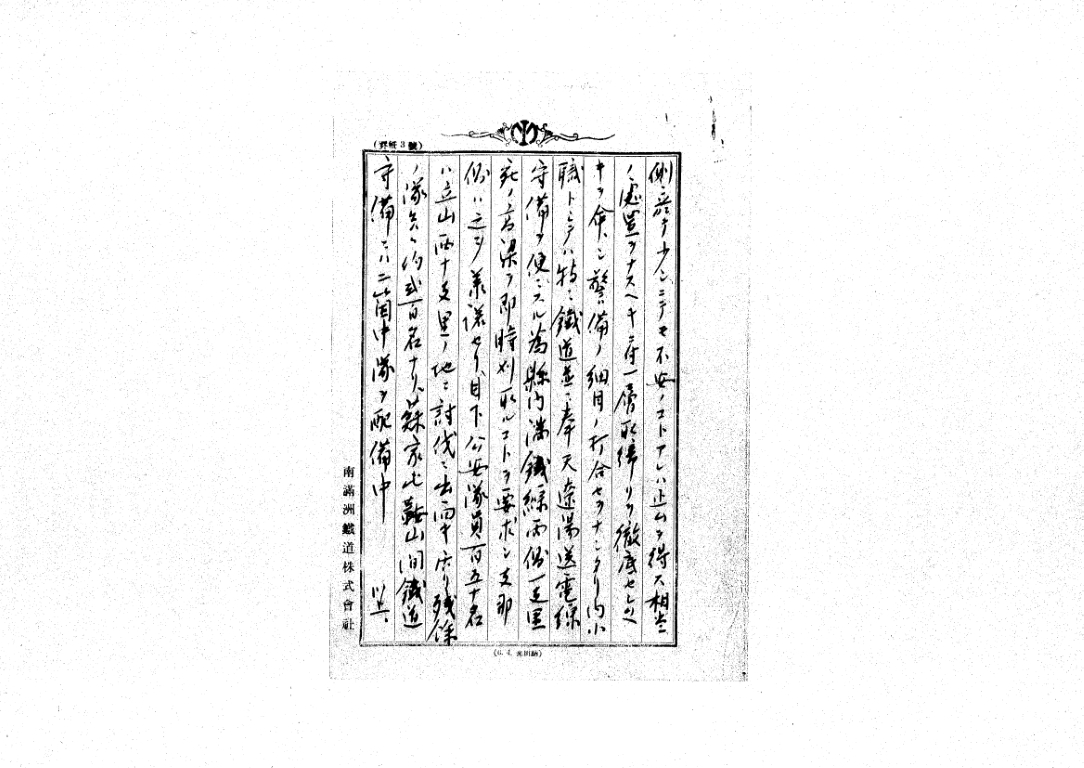 (野紙3號)
側ニ於テ少シニテモ不安ノコトアレハ止ムヲ得ス相当
ノ處置ヲナスヘキニ付一層取締リヲ徹底セシムヘ
キヲ命シ警備ノ細目ノ打合セヲナシタリ尚小
職トシテハ特ニ鐵道並ニ奉天遼陽送電線
守備ヲ便ニスル為縣内満鐵線両側一支里
宛ノ高梁ヲ即時刈取ルコトヲ要求シ支那
側ハ之ヲ承諾セリ、目下公安隊員一百五十名
ハ立山西十支里ノ地ニ討伐ニ出向中ニテ残余
ノ隊員ハ約弐百名ナリ、蘇家屯鞍山間鐵道
守備ニハ二箇中隊ヲ配備中 以上、
南滿洲鐵道株式會社